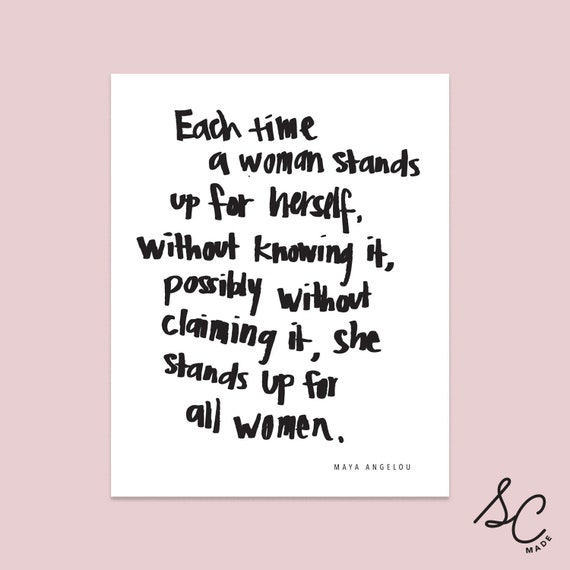 Each time
a woman stands
up for herself,
without knowing it,
possibly without
claiming it, she
stands up for
all women.
MAYA ANGELOU
SC
MADE